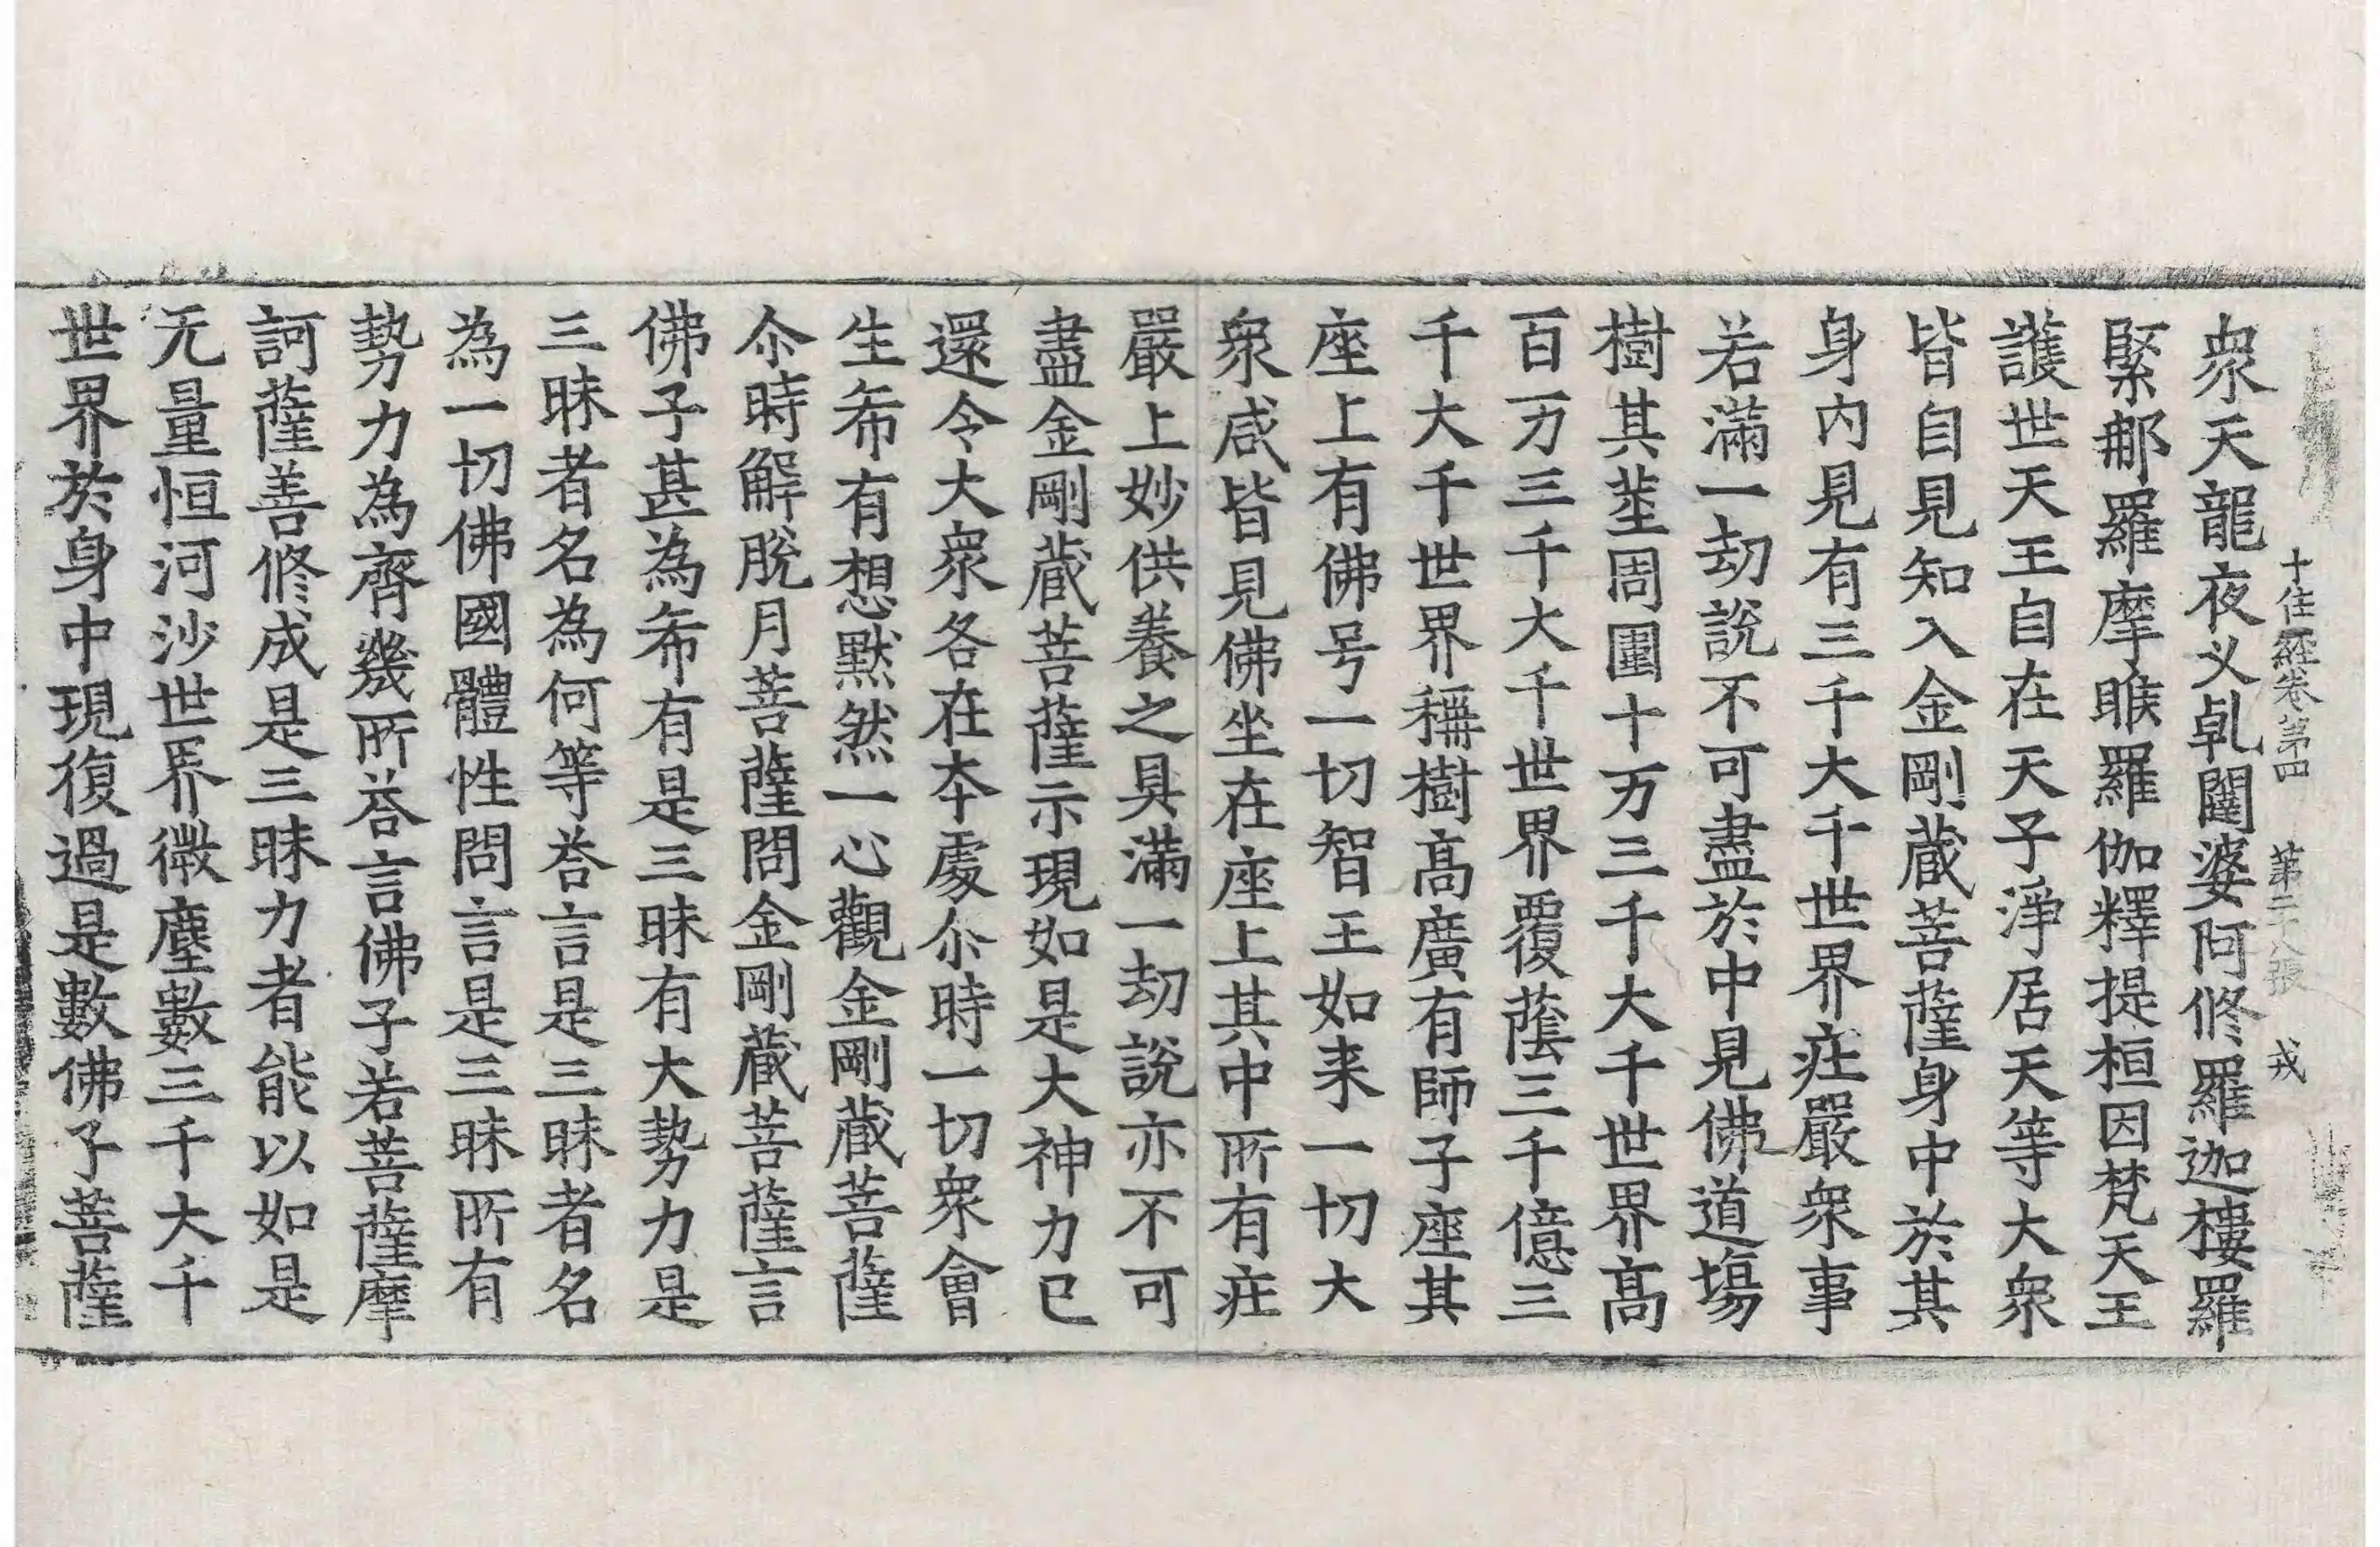 十住經卷第四　第二十八張　戎
衆天龍夜义乹闥婆阿修羅迦樓羅
緊那羅摩睺羅伽釋提桓因梵天王
護世天王自在天子淨居天等大衆
皆自見知入金剛蔵菩薩身中於其
身內見有三千大千世界庄嚴衆事
若滿一劫說不可盡於中見佛道場
樹其莖周圍十万三千大千世界高
百万三千大千世界覆蔭三千億三
千大千世界稱樹高廣有師子座其
座上有佛号一切智王如来一切大
衆咸皆見佛坐在座上其中所有庄
嚴上妙供養之具滿一劫說亦不可
盡金剛蔵菩薩示現如是大神力已
還令大衆各在本處尒時一切衆會
生希有想默然一心觀金剛蔵菩薩
尒時解脫月菩薩問金剛蔵菩薩言
佛子甚為希有是三昧有大勢力是
三昧者名為何等荅言是三昧者名
為一切佛國體性問言是三昧所有
勢力為齊幾所荅言佛子若菩薩摩
訶薩善修成是三昧力者能以如是
无量恒河沙世界微塵數三千大千
世界於身中現復過是數佛子菩薩